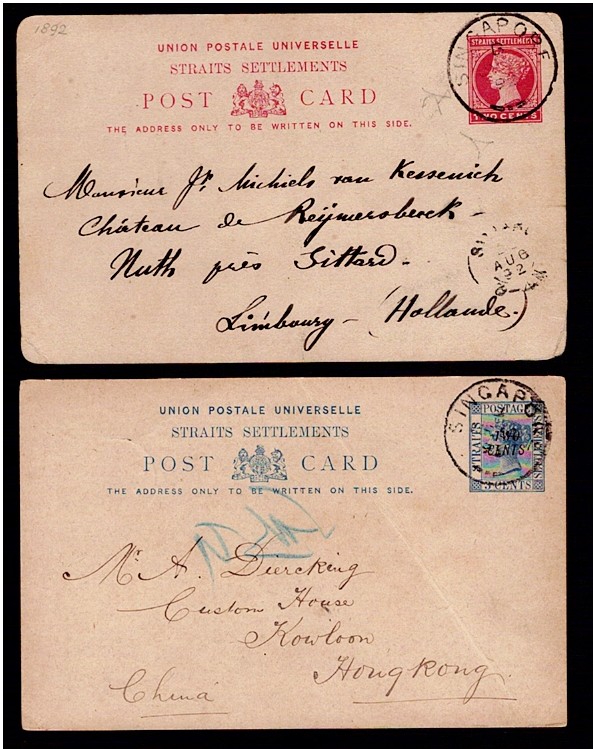 1892
UNION POSTALE UNIVERSELLE
STRAITS SETTLEMENTS
POST CARD
THE ADDRESS ONLY TO BE WRITTEN ON THIS SIDE.
SINGAPORE
STRAITS SETTLEMENTS
TWO CENTS
Monsieur Jr. Michiels van Kessenich
Château de Reijmersbeek
Nuth près Sittard
Limbourg (Hollande)
AUG
92
UNION POSTALE UNIVERSELLE
STRAITS SETTLEMENTS
POST CARD
THE ADDRESS ONLY TO BE WRITTEN ON THIS SIDE.
SINGAPO
POSTAGE
STRAITS
TWO
CENTS
3 CENTS
Mr. A. Diercking
Custom House
Kowloon
Hongkong
China